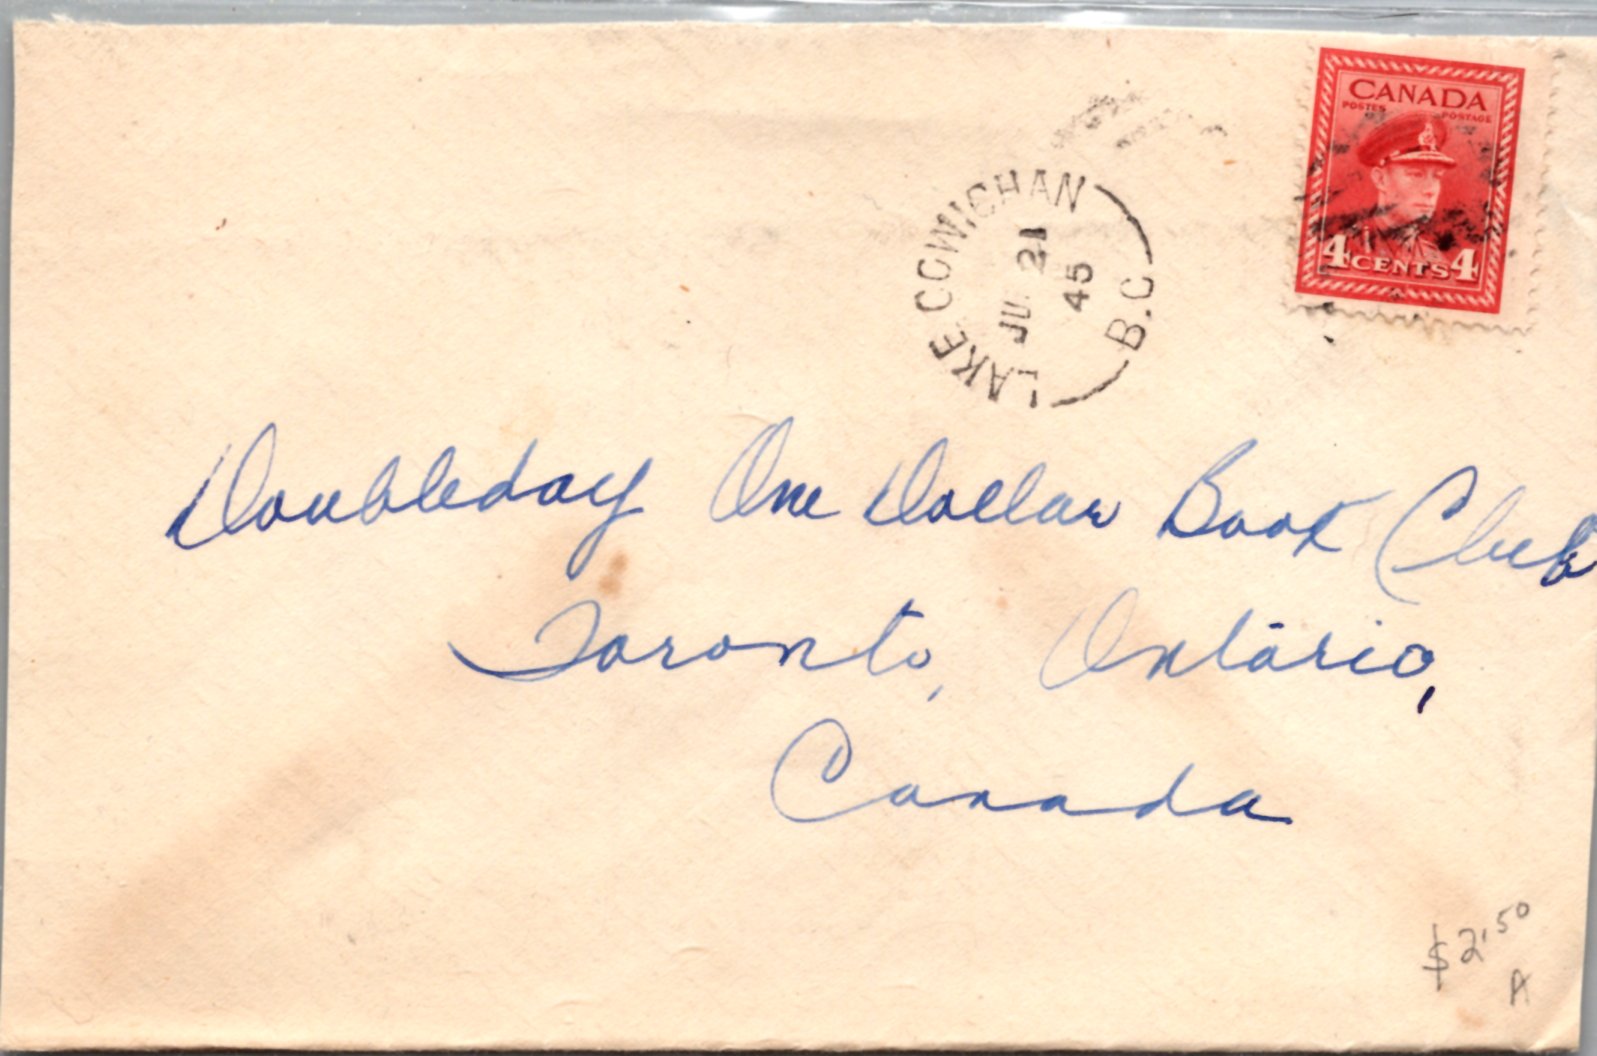 CANADA
POSTES POSTAGE
4 CENTS 4
LAKE COWICHAN
B.C.
21
45
Doubleday One Dollar Book Club
Toronto, Ontario,
Canada
$2.50
A